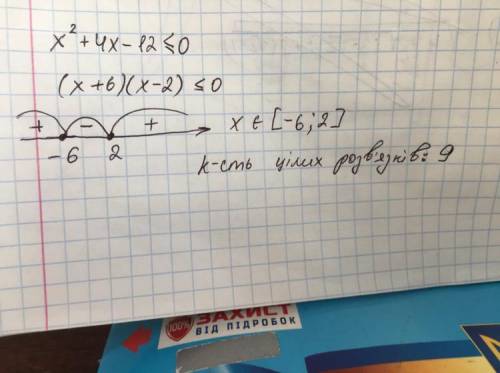 x² + 4x - 12 ≤ 0
(x + 6)(x - 2) ≤ 0
+ - +
-6 2
x ∈ [-6; 2]
к-сть цілих розв'язків: 9
100%
ЗАХИСТ
ВІД ПІДРОБОК